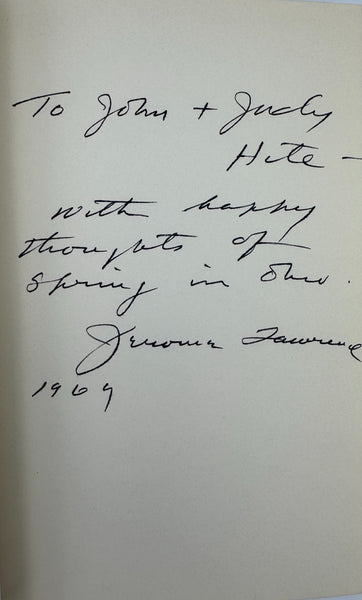 To John + Judy
Hite -
with happy
thoughts of
spring in Ohio.
Jerome Lawrence
1969